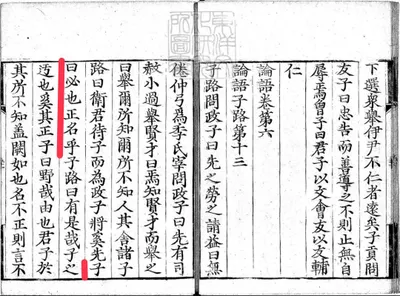 下選衆舉伊尹不仁者遠矣子貢問
友子曰忠告而善導之不則止無自
辱焉曾子曰君子以文會友以友輔
仁
論語卷第六
論語子路第十三
子路問政子曰先之勞之請益曰無
倦仲弓為季氏宰問政子曰先有司
赦小過舉賢才曰焉知賢才而舉之
曰舉爾所知爾所不知人其舍諸子
路曰衛君待子而為政子將奚先子
曰必也正名乎子路曰有是哉子之
迂也奚其正子曰野哉由也君子於
其所不知蓋闕如也名不正則言不